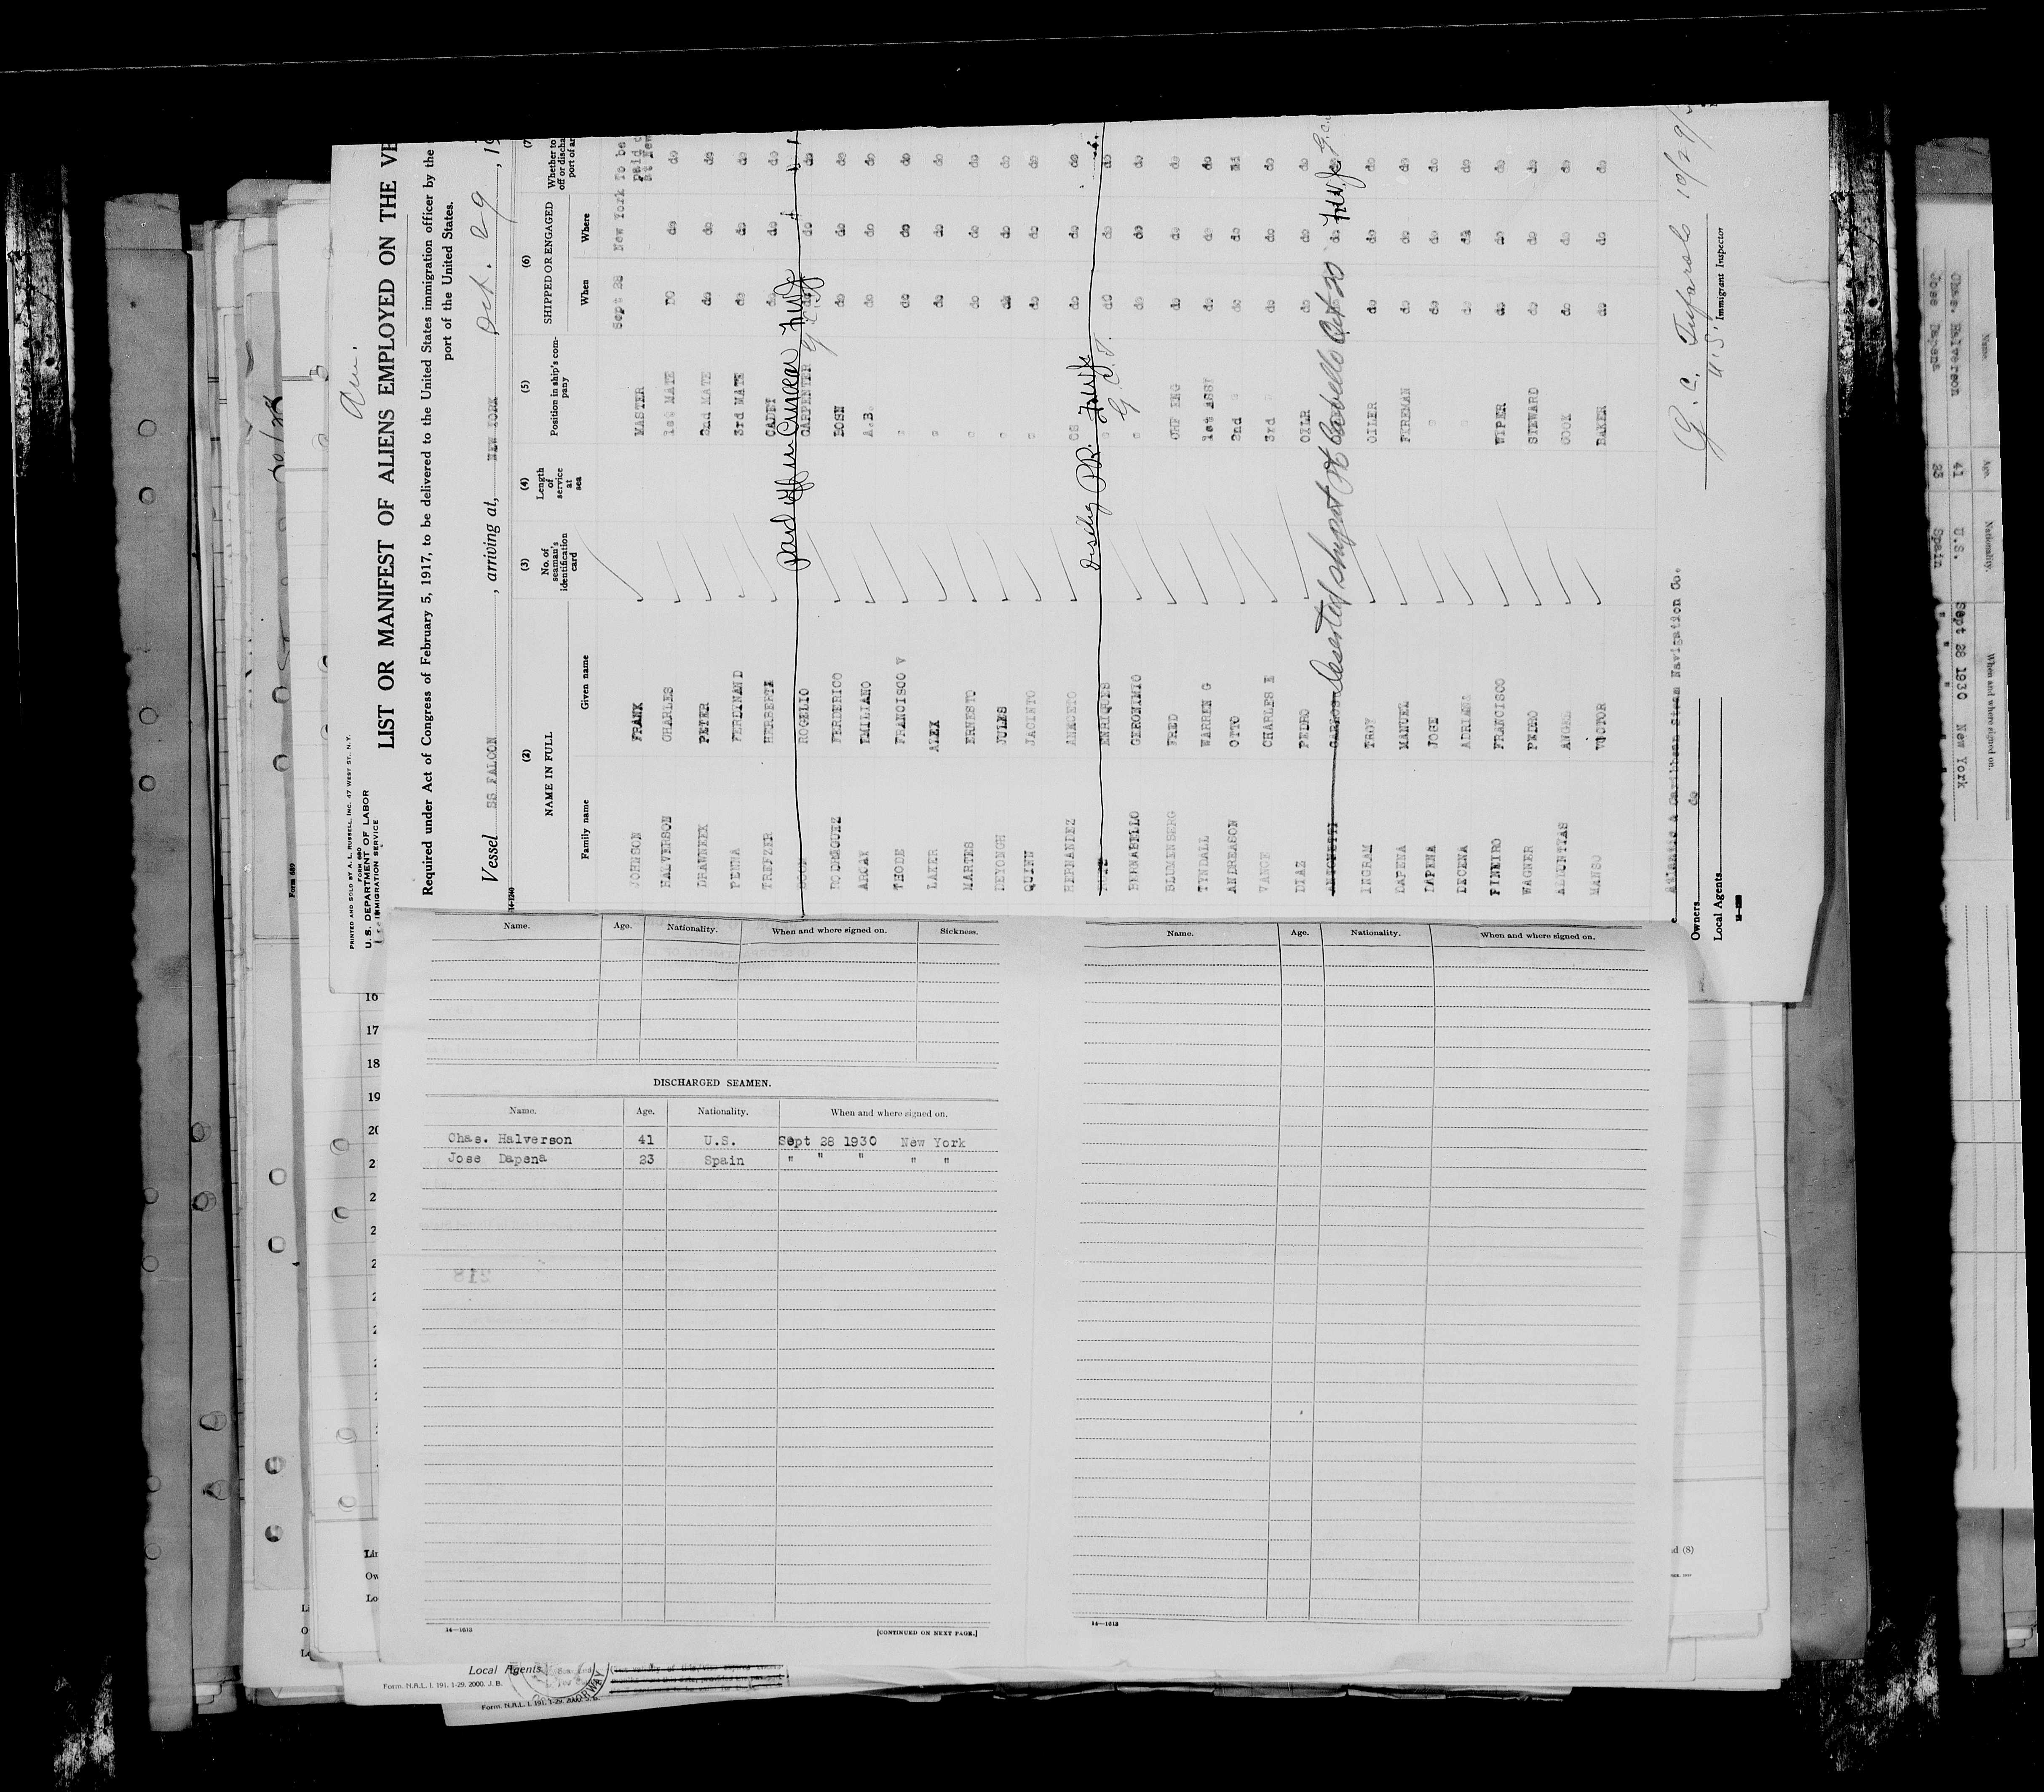 Am.
PRINTED AND SOLD BY A. L. RUSSELL, INC. 47 WEST ST. N.Y.
FORM 680
U. S. DEPARTMENT OF LABOR
IMMIGRATION SERVICE
LIST OR MANIFEST OF ALIENS EMPLOYED ON THE VE
Required under Act of Congress of February 5, 1917, to be delivered to the United States immigration officer by the
port of the United States.
Vessel SS FALCON, arriving at, NEW YORK, Oct. 29, 19
14-1240
(2) (3) (4) (5) (6) (7)
NAME IN FULL No. of seaman's identification card Length of service at sea Position in ship's company SHIPPED OR ENGAGED Whether to
off or discha
port of ar
Family name Given name When Where
JOHNSON FRANK MASTER Sept 28 New York To be
paid o
at New
HALVERSON CHARLES 1st MATE DO do do
DRAWNEEK PETER 2nd MATE do do do
PENNA FERDINAND 3rd MATE do do do
TREFZER HERBERTA CADET do do do
ROGELIO CARPENTER do do do
paid off in Curacao
RODRIQUEZ FERDERICO BOSN do do do
AROAY EMILIANO A.B. do do do
THODE FRANCISCO V do do do
LAKER ALEX do do do
MARTES ERNESTO do do do
DEYONGH JULES do do do
QUINN JACINTO do do do
HERNANDEZ ANACETO OS do do do
ENRIQUES do do do
G. C. T.
BERNABELLO GERONIMIO do do do
BLUMENBERG FRED CHF ENG do do do
TYNDALL WARREN G 1st ASST do do do
ANDREASON OTTO 2nd do do
VANCE CHARLES E 3rd do do do
DIAZ PEDRO OILR do do do
CARLOS Deserted ship at Pt Cabello Oct 20
INGRAM TROY OILER do do do
DAPENA MANUEL FIREMAN do do do
DAPENA JOSE do do do
DECENA ADRIANA do do do
PINEIRO FRANCISCO WIPER do do do
WAGNER PEDRO STEWARD do do do
ANGEL COOK do do do
MANSO VICTOR BAKER do do do
Atlantic & Caribbean Steam Navigation Co.
Owners do
Local Agents
G. C. Tufarolo 10/29/
U.S. Immigrant Inspector
Name. Age. Nationality. When and where signed on. Sickness.
DISCHARGED SEAMEN.
Name. Age. Nationality. When and where signed on.
Chas. Halverson 41 U.S. Sept 28 1930 New York
Jose Dapena 23 Spain " " " " "
218
14—1613
[CONTINUED ON NEXT PAGE.]
Name. Age. Nationality. When and where signed on.
14—1613
16
17
18
19
20
Form 689
Local Agents
Form. N.A.L. I. 191. 1-29. 2000. J. B.
Form. N.A.L. I. 191. 1-29. 2000. J. B.
Name. Age. Nationality. When and where signed on.
Chas. Halverson 41 U.S. Sept 28 1930 New York
Jose Dapena 23 Spain